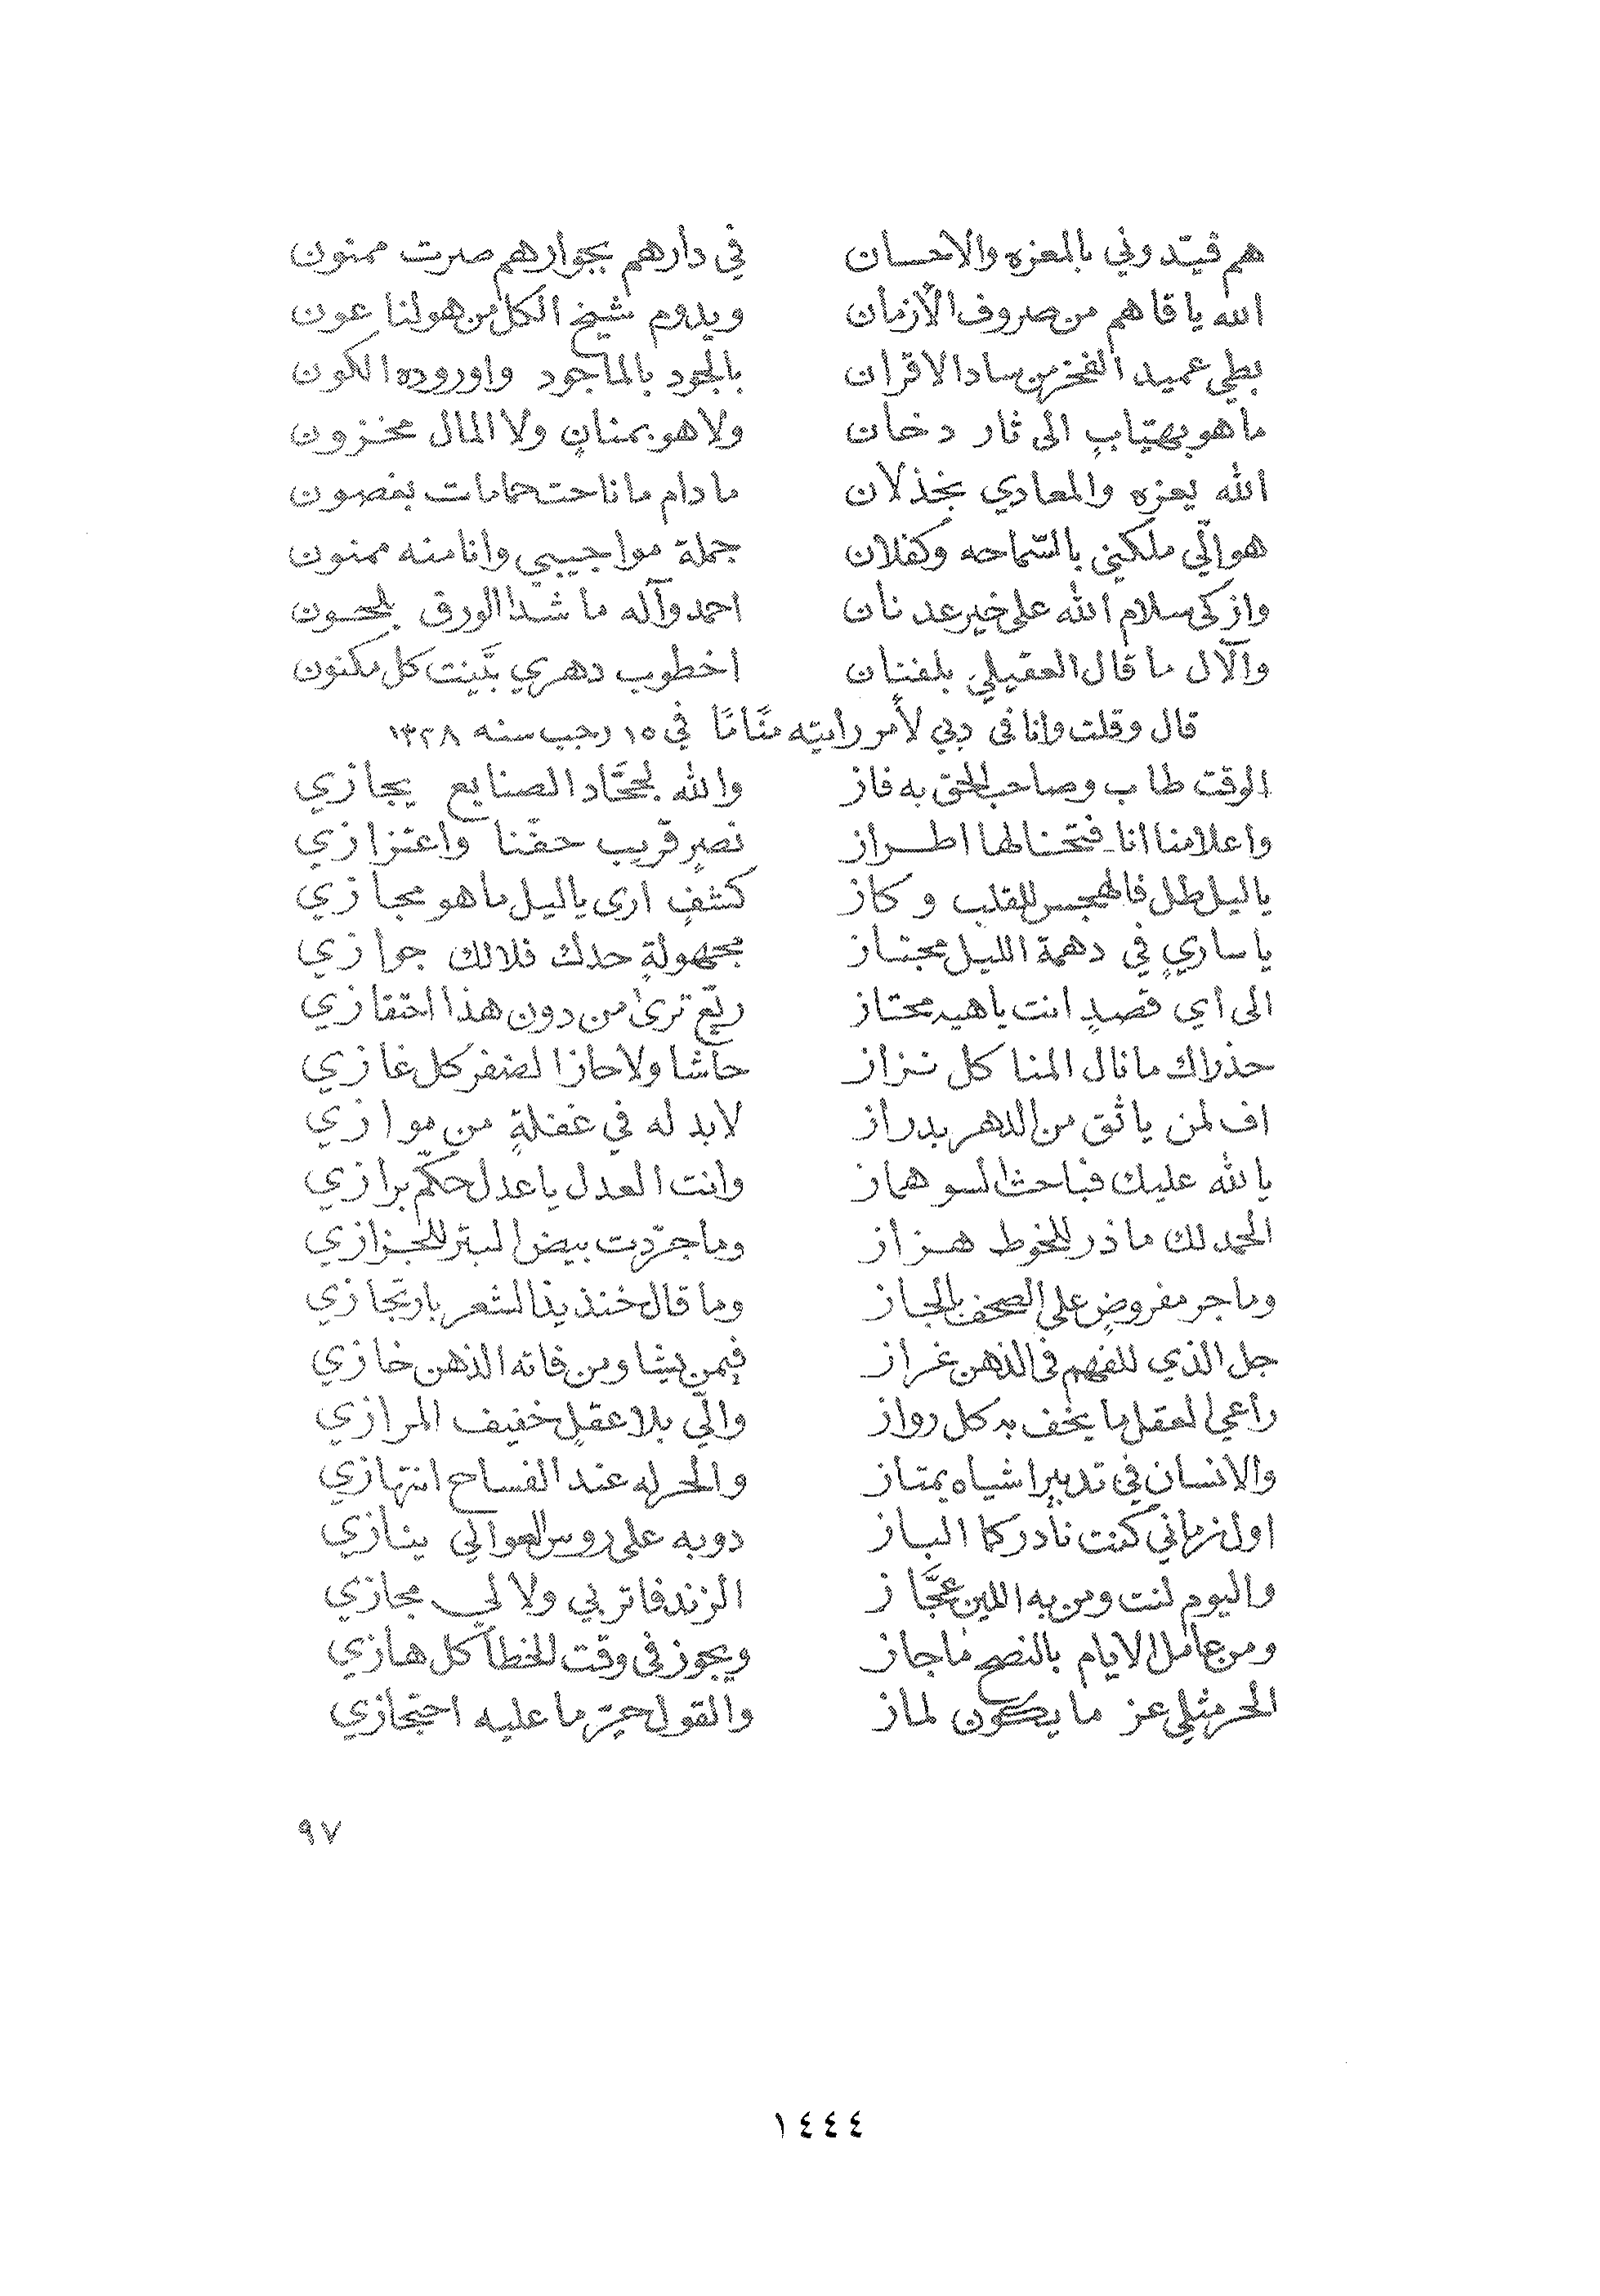 هم قيّدوني بالمعزه والاحسان في دارهم بجوارهم صرت ممنون
الله ياقاهم من صروف الأزمان ويدوم شيخ الكل من هو لنا عون
بطي عميد الفخر من ساد الاقران بالجود بالماجود واوروده الكون
ما هو بهيّابٍ الى ثار دخان ولا هو بمنانٍ ولا المال مخزون
الله يعزه والمعادي بخذلان ما دام ما ناحت حمامات بغصون
هو الّي ملكني بالسّماحه وكفلان جملة مواجيبي وانا منه ممنون
وازكى سلام الله على خير عدنان احمد وآله ما شدا الورق بلحون
والآل ما قال العقيلي بلفتان اخطوب دهري بيّنت كل مكنون
قال وقلت وانا في دبي لأمر رايته منامًا في ١٥ رجب سنه ١٣٢٨
الوقت طاب وصاحب الحق به فاز والله لجحّاد الصنايع يجازي
واعلامنا انا فتحنا لها اطراز نصرٍ قريب حقنا واعتزازي
يا ليل طل فالهجس للقلب وكاز كشفٍ ارى يا ليل ما هو مجازي
يا ساريٍ في دهمة الليل مجتاز مجهولةٍ حدك فلا لك جوازي
الى أي قصدٍ انت يا هيه محتاز ريّع ترى من دون هذا احتقازي
حذراك ما نال المنا كل نزاز حاشا ولا حاز الضفر كل غازي
اف لمن ياثق من الدهر بدراز لابد له في غفلةٍ من موازي
يا لله عليك قباحث السو هماز وانت العدل يا عدل حكّم برازي
الحمد لك ما ذر للخوط هزاز وما جرّدت بيض البتر للجزازي
وما جر مفروضٍ على الصحف بالجاز وما قال خنذيذ الشعر بارتجازي
جل الذي للفهم في الذهن غراز فيمن يشا ومن فاته الذهن خازي
راعي العقل ما يخف به كل رواز والّي بلا عقلٍ خفيف المرازي
والانسان في تدبير اشياه يمتاز والحر له عند الفساح انتهازي
اول زماني كنت نادر كما الباز دوبه على روس العوالي ينازي
واليوم لنت ومن به اللين عجّاز الزند فاتر بي ولا لي مجازي
ومن عامل الايام بالنصح ما جاز ويجوز في وقت الخطا كل هازي
الحر مثلي عز ما يكون لماز والقول حجز ما عليه احتجازي
٩٧
١٤٤٤